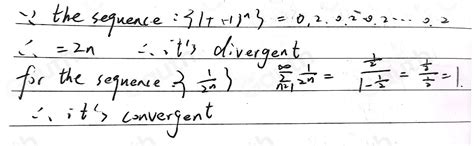 ∵ the sequence : {1+(-1)ⁿ} = 0, 2, 0, 2, 0, 2 ... 0, 2
∴ = 2n ∴ it's divergent
for the sequence {1/2ⁿ} ∑_{n=1}^{∞} 1/2ⁿ = (1/2)/(1-1/2) = (1/2)/(1/2) = 1.
∴ it's convergent